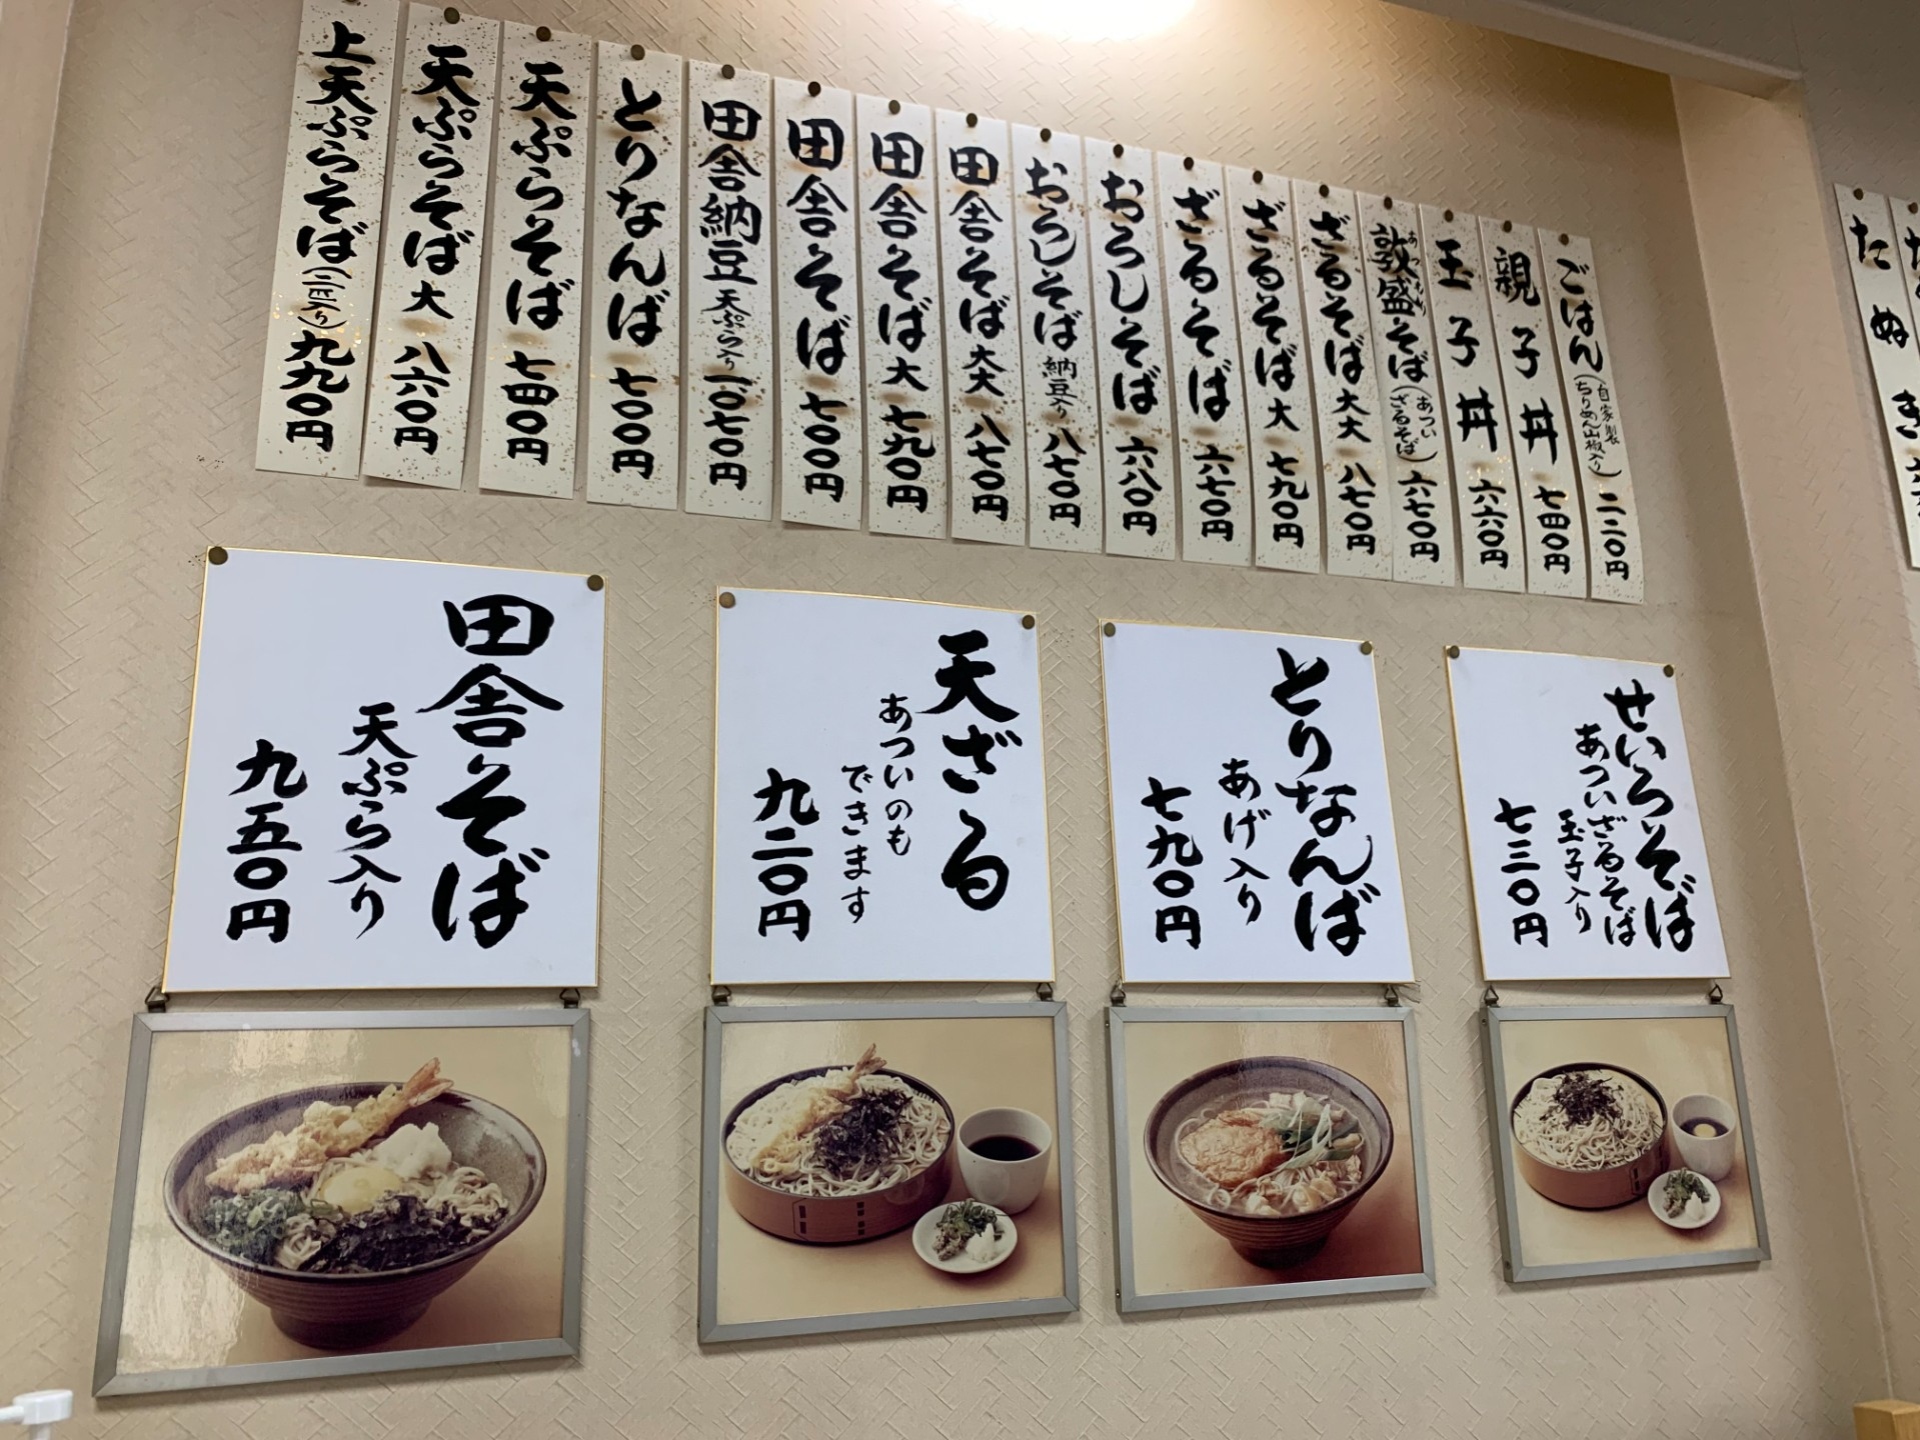 たぬき
ごはん(自家製ちりめん山椒入り)二二〇円
親子丼 七四〇円
玉子丼 六六〇円
敦盛そば(あついざるそば)六七〇円
あつもり
ざるそば大大 八七〇円
ざるそば大 七九〇円
ざるそば 六七〇円
おろしそば 六八〇円
おろしそば 納豆入り 八七〇円
田舎そば大大 八七〇円
田舎そば大 七九〇円
田舎そば 七〇〇円
田舎納豆 天ぷら入り 一、〇七〇円
とりなんば 七〇〇円
天ぷらそば 七四〇円
天ぷらそば大 八六〇円
上天ぷらそば(二匹入り)九九〇円
せいろそば
あついざるそば
玉子入り
七三〇円
とりなんば
あげ入り
七九〇円
天ざる
あついのも
できます
九二〇円
田舎そば
天ぷら入り
九五〇円